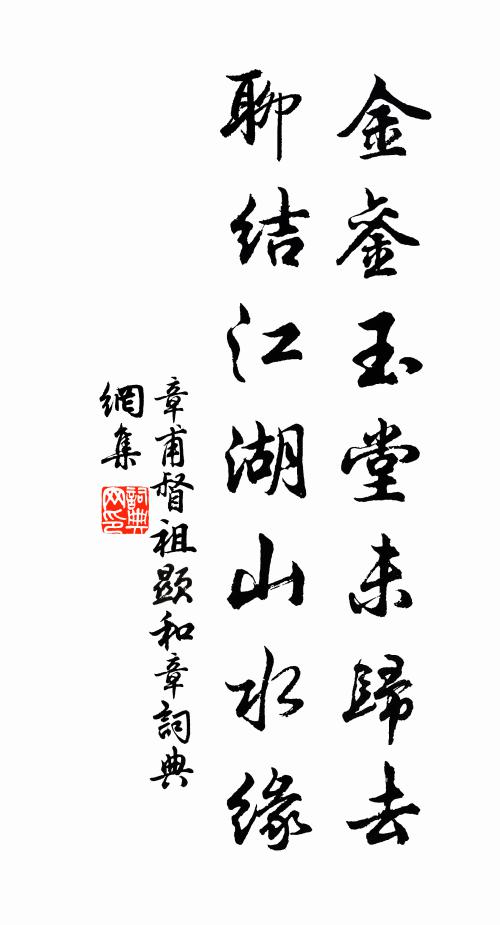 金銮玉堂未歸去
聊結江湖山水緣
章甫督祖顕和章詞典
網集
詞典
网印